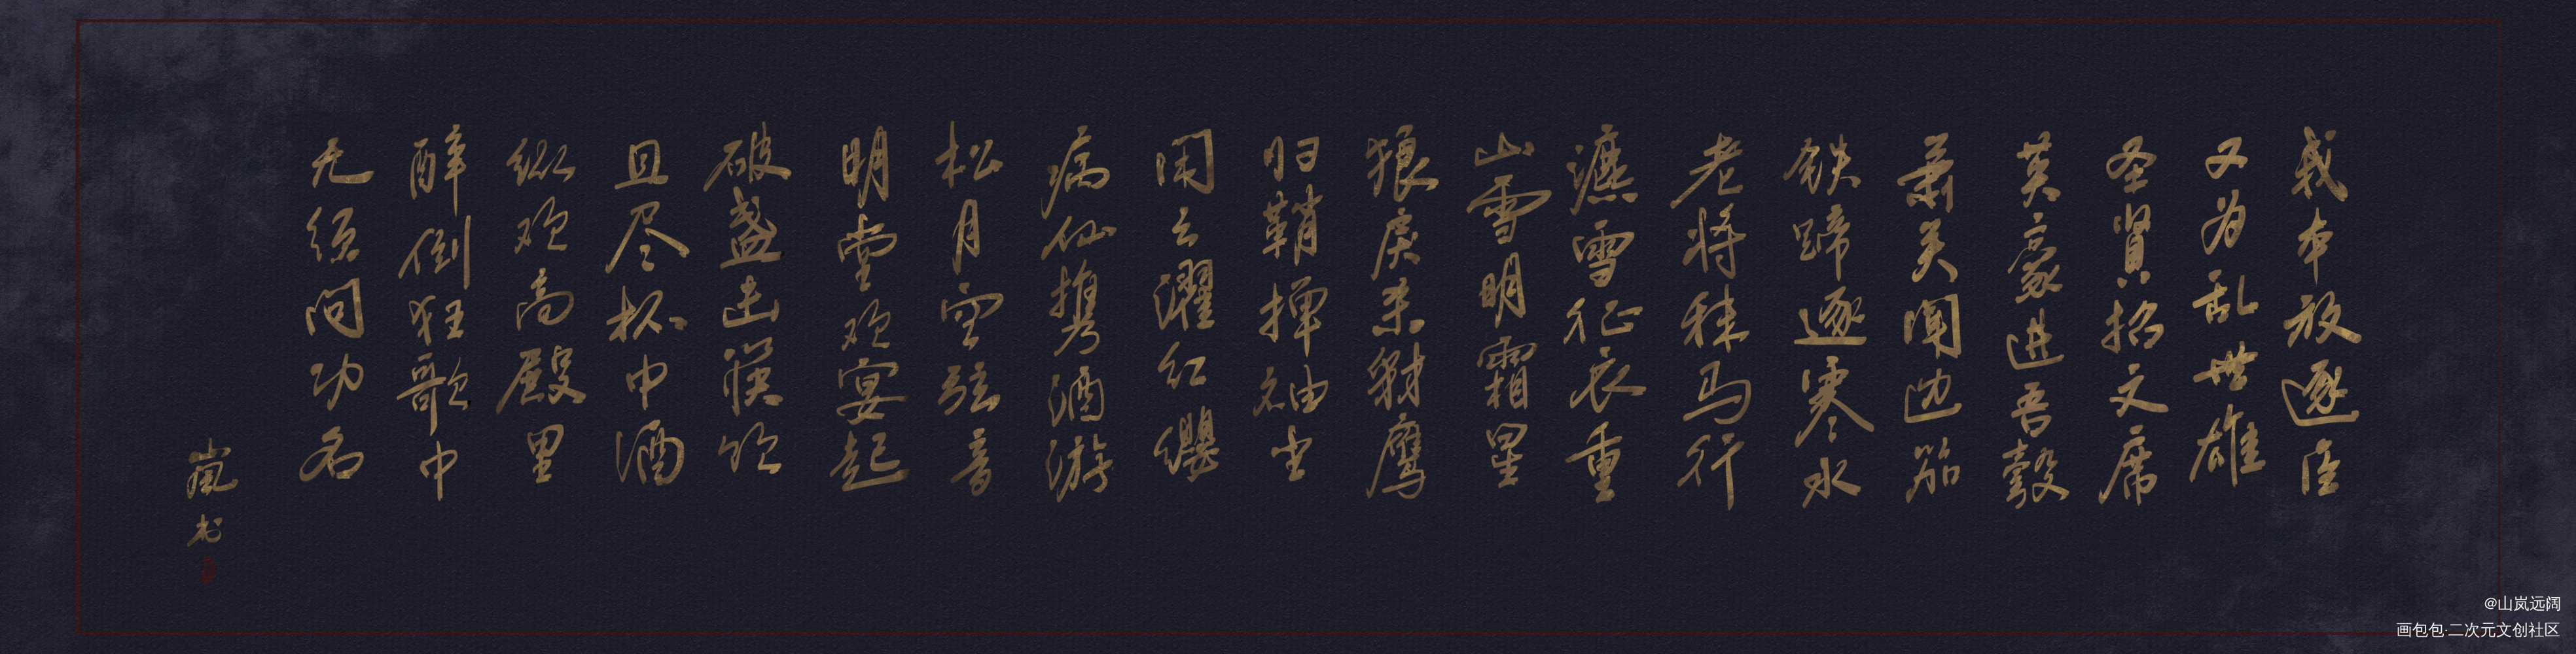 我本放逐臣
又为乱世雄
圣贤招文席
英豪进吾彀
萧关闻边笳
铁蹄逐寒水
老将秣马行
漉雪征衣重
山雪明霜星
狼戾杀豺鹰
归鞘掸袖尘
闲云濯红缨
病仙携酒游
松月空弦音
明堂欢宴起
破盏击筷饮
且尽杯中酒
纵欢高殿里
醉倒狂歌中
无须问功名
岚书
@山岚远阔
画包包·二次元文创社区